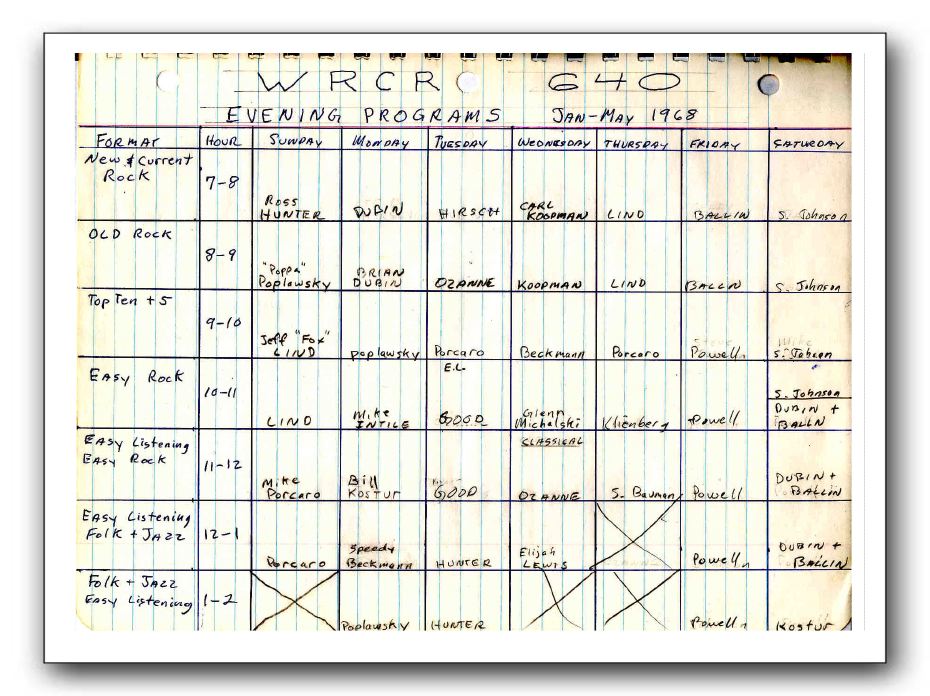 WRCR 640
EVENING PROGRAMS JAN-MAY 1968
FORMAT HOUR SUNDAY MONDAY TUESDAY WEDNESDAY THURSDAY FRIDAY SATURDAY
New & Current
ROCK
7-8
ROSS
HUNTER DUBIN HIRSCH CARL
KOOPMAN LIND BALLIN S. Johnson
OLD ROCK
8-9
"Poppa"
Poplawsky BRIAN
DUBIN OZANNE KOOPMAN LIND BALLIN S. Johnson
Top Ten + 5
9-10
Jeff "Fox"
LIND Poplawsky Porcaro Beckmann Porcaro Powell Mike
S. Johson
EASY ROCK
10-11
LIND Mike
INTILE E.L.
GOOD Glenn
Michalski Klienberg Powell S. Johnson
DUBIN +
BALLN
EASY Listening
EASY ROCK
11-12
Mike
Porcaro Bill
KOSTUR GOOD CLASSICAL
OZANNE S. Bauman Powell DUBIN +
BALLIN
EASY Listening
FOLK + JAZZ
12-1
Porcaro Speedy
Beckmann HUNTER Elijah
LEWIS Powell DUBIN +
BALLIN
FOLK + JAZZ
EASY Listening
1-2
Poplawsky HUNTER Powell Kostur